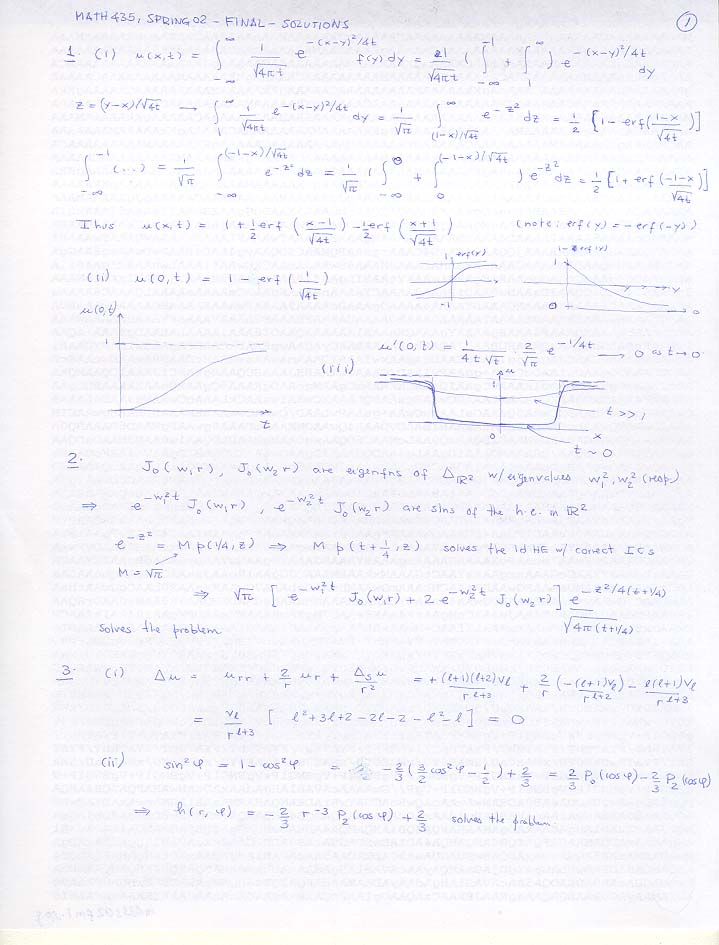 MATH 435, SPRING 02 - FINAL - SOLUTIONS
①
1. (i) u(x,t) = ∫_{-∞}^{∞} 1/√(4πt) e^{-(x-y)²/4t} f(y) dy = 1/√(4πt) ( ∫_{-∞}^{-1} + ∫_{1}^{∞} ) e^{-(x-y)²/4t} dy
z = (y-x)/√4t → ∫_{1}^{∞} 1/√(4πt) e^{-(x-y)²/4t} dy = 1/√π ∫_{(1-x)/√4t}^{∞} e^{-z²} dz = 1/2 [1 - erf(1-x/√4t)]
∫_{-∞}^{-1} (...) = 1/√π ∫_{-∞}^{(-1-x)/√4t} e^{-z²} dz = 1/√π ( ∫_{-∞}^{0} + ∫_{0}^{(-1-x)/√4t} ) e^{-z²} dz = 1/2 [1 + erf(-1-x/√4t)]
Thus u(x,t) = 1 + 1/2 erf (x-1/√4t) - 1/2 erf (x+1/√4t) (note: erf(y) = -erf(-y))
(ii) u(0,t) = 1 - erf (1/√4t)
1 erf(y)
-1
1 - erf(y)
1
0
y
u(0,t)
1
t
u'(0,t) = 1/(4t√t) · 2/√π e^{-1/4t} → 0 as t→0
(iii)
u
1
0
x
t >> 1
t ~ 0
2. J₀(w₁r), J₀(w₂r) are eigenfns of Δ_{ℝ²} w/ eigenvalues w₁², w₂² (resp.)
⇒ e^{-w₁²t} J₀(w₁r), e^{-w₂²t} J₀(w₂r) are slns of the h.e. in ℝ²
e^{-z²} = M p(1/4, z) ⇒ M p(t+1/4, z) solves the 1d HE w/ correct ICs
M = √π
⇒ √π [ e^{-w₁²t} J₀(w₁r) + 2 e^{-w₂²t} J₀(w₂r) ] e^{-z²/4(t+1/4)}/√(4π(t+1/4))
solves the problem
3. (i) Δu = u_rr + 2/r u_r + Δ_S u/r² = +(l+1)(l+2)Y_l/r^{l+3} + 2/r (-(l+1)Y_l/r^{l+2}) - l(l+1)Y_l/r^{l+3}
= Y_l/r^{l+3} [ l²+3l+2-2l-2-l²-l ] = 0
(ii) sin²φ = 1 - cos²φ = -2/3 (3/2 cos²φ - 1/2) + 2/3 = 2/3 P₀(cosφ) - 2/3 P₂(cosφ)
⇒ h(r,φ) = -2/3 r⁻³ P₂(cosφ) + 2/3 solves the problem.